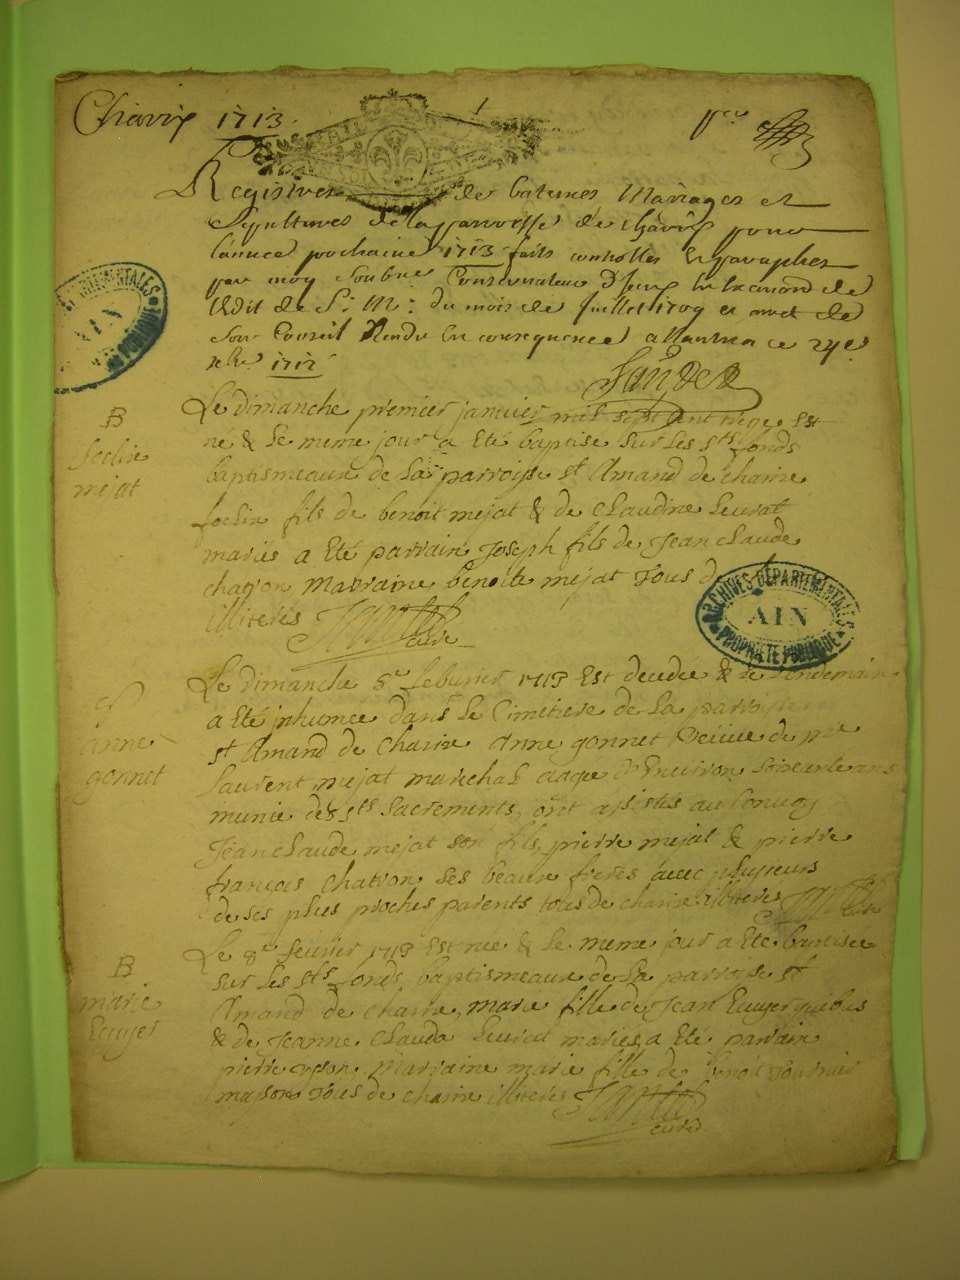 Chavix 1713. 1 pre
Registres de batemes Mariages et
Sepultures de la parroisse de Chavix pour
l'année prochaine 1713 faits controllés et paraphés
par moy Soubné Conservateur
l'Edit de S: M: du mois de Juillet 1709 et arret de
Son Conseil Rendu en consequence a Nantua ce 29e
xbre 1712
B
foclin
mejat
Le dimanche premier janvier mil sept cent treize Est
né & le meme jour a Eté baptisé sur les sts fonds
baptismeaux de la parroisse st Amand de chavix
foclin fils de benoit mejat & de claudine Leurat
mariés a Eté parrain Joseph fils de Jean claude
chatron Marraine benoite mejat Tous d
illiterés
curé
ARCHIVES DÉPARTEMENTALES
AIN
PROPRIÉTÉ PUBLIQUE
anne
gonnet
Le dimanche 5e febvrier 1713 Est decedee & le Lendemain
a Eté inhumée dans Le Cimetiere de La parroisse
st Amand de Chavix Anne gonnet veuve de
Laurent mejat marechal aagee d'Environ ans
munie des sts Sacrements, ont assistés au Convoy
Jean claude mejat son fils, pierre mejat & pierre
françois chatron ses beaux freres avec plusieurs
de ses plus proches parents tous de chavix illiterés
curé
B
marie
Ecuyer
Le 8e fevrier 1713 Est née & le meme jour a Eté baptisée
sur les sts fonds baptismeaux de la parroisse st
Amand de chavix, marie fille de Jean Ecuyer
& de Jeanne Clauda Leurat mariés, a Eté parrain
pierre Marraine marie fille de benoit
masson Tous de chavix illiterés
curé